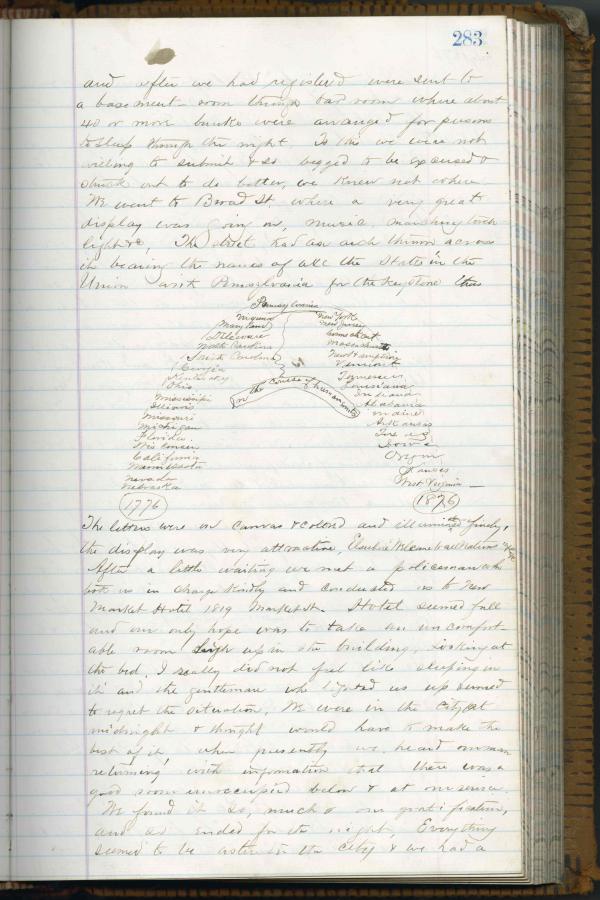 283
and after we had registered were sent to
a basement room through bar room where about
40 or more bunks were arranged for persons
to sleep through the night. To this we were not
willing to submit & so begged to be excused &
struck out to do better, we knew not where
We went to Broad St. where a very great
display was going on, music, marching torch
light &c, The street had an arch thrown across
it bearing the names of all the States in the
Union with Pennsylvania for the Keystone thus
Pennsylvania
Virginia
Maryland
Delaware
North Carolina
South Carolina
Georgia
Kentucky
Ohio
Mississippi
Illinois
Missouri
Michigan
Florida
Wisconsin
California
Minnesota
Nevada
Nebraska
1776
New York
New Jersey
Connecticut
Massachusetts
New Hampshire
Vermont
Tennessee
Louisiana
Indiana
Alabama
Maine
Arkansas
Texas
Iowa
Oregon
Kansas
West Virginia
1876
In the Course of human events
The letters were on canvas & colored and illuminated finely,
the display was very attractive, Welcome to all Nations
After a little waiting we met a policeman who
took us in charge kindly and conducted us to New
Market Hotel 1819 Market St. Hotel seemed full
and our only hope was to take an uncomfort-
able room high up in the building, looking at
the bed, I really did not feel like sleeping in
it and the gentleman who lighted us up seemed
to regret the situation. We were in the City at
midnight & thought would have to make the
best of it, when presently we heard our man
returning with information that there was a
good room unoccupied below & at our service.
We found it so, much to our gratification,
and so ended for the night. Everything
seemed to be astir in the City & we had a